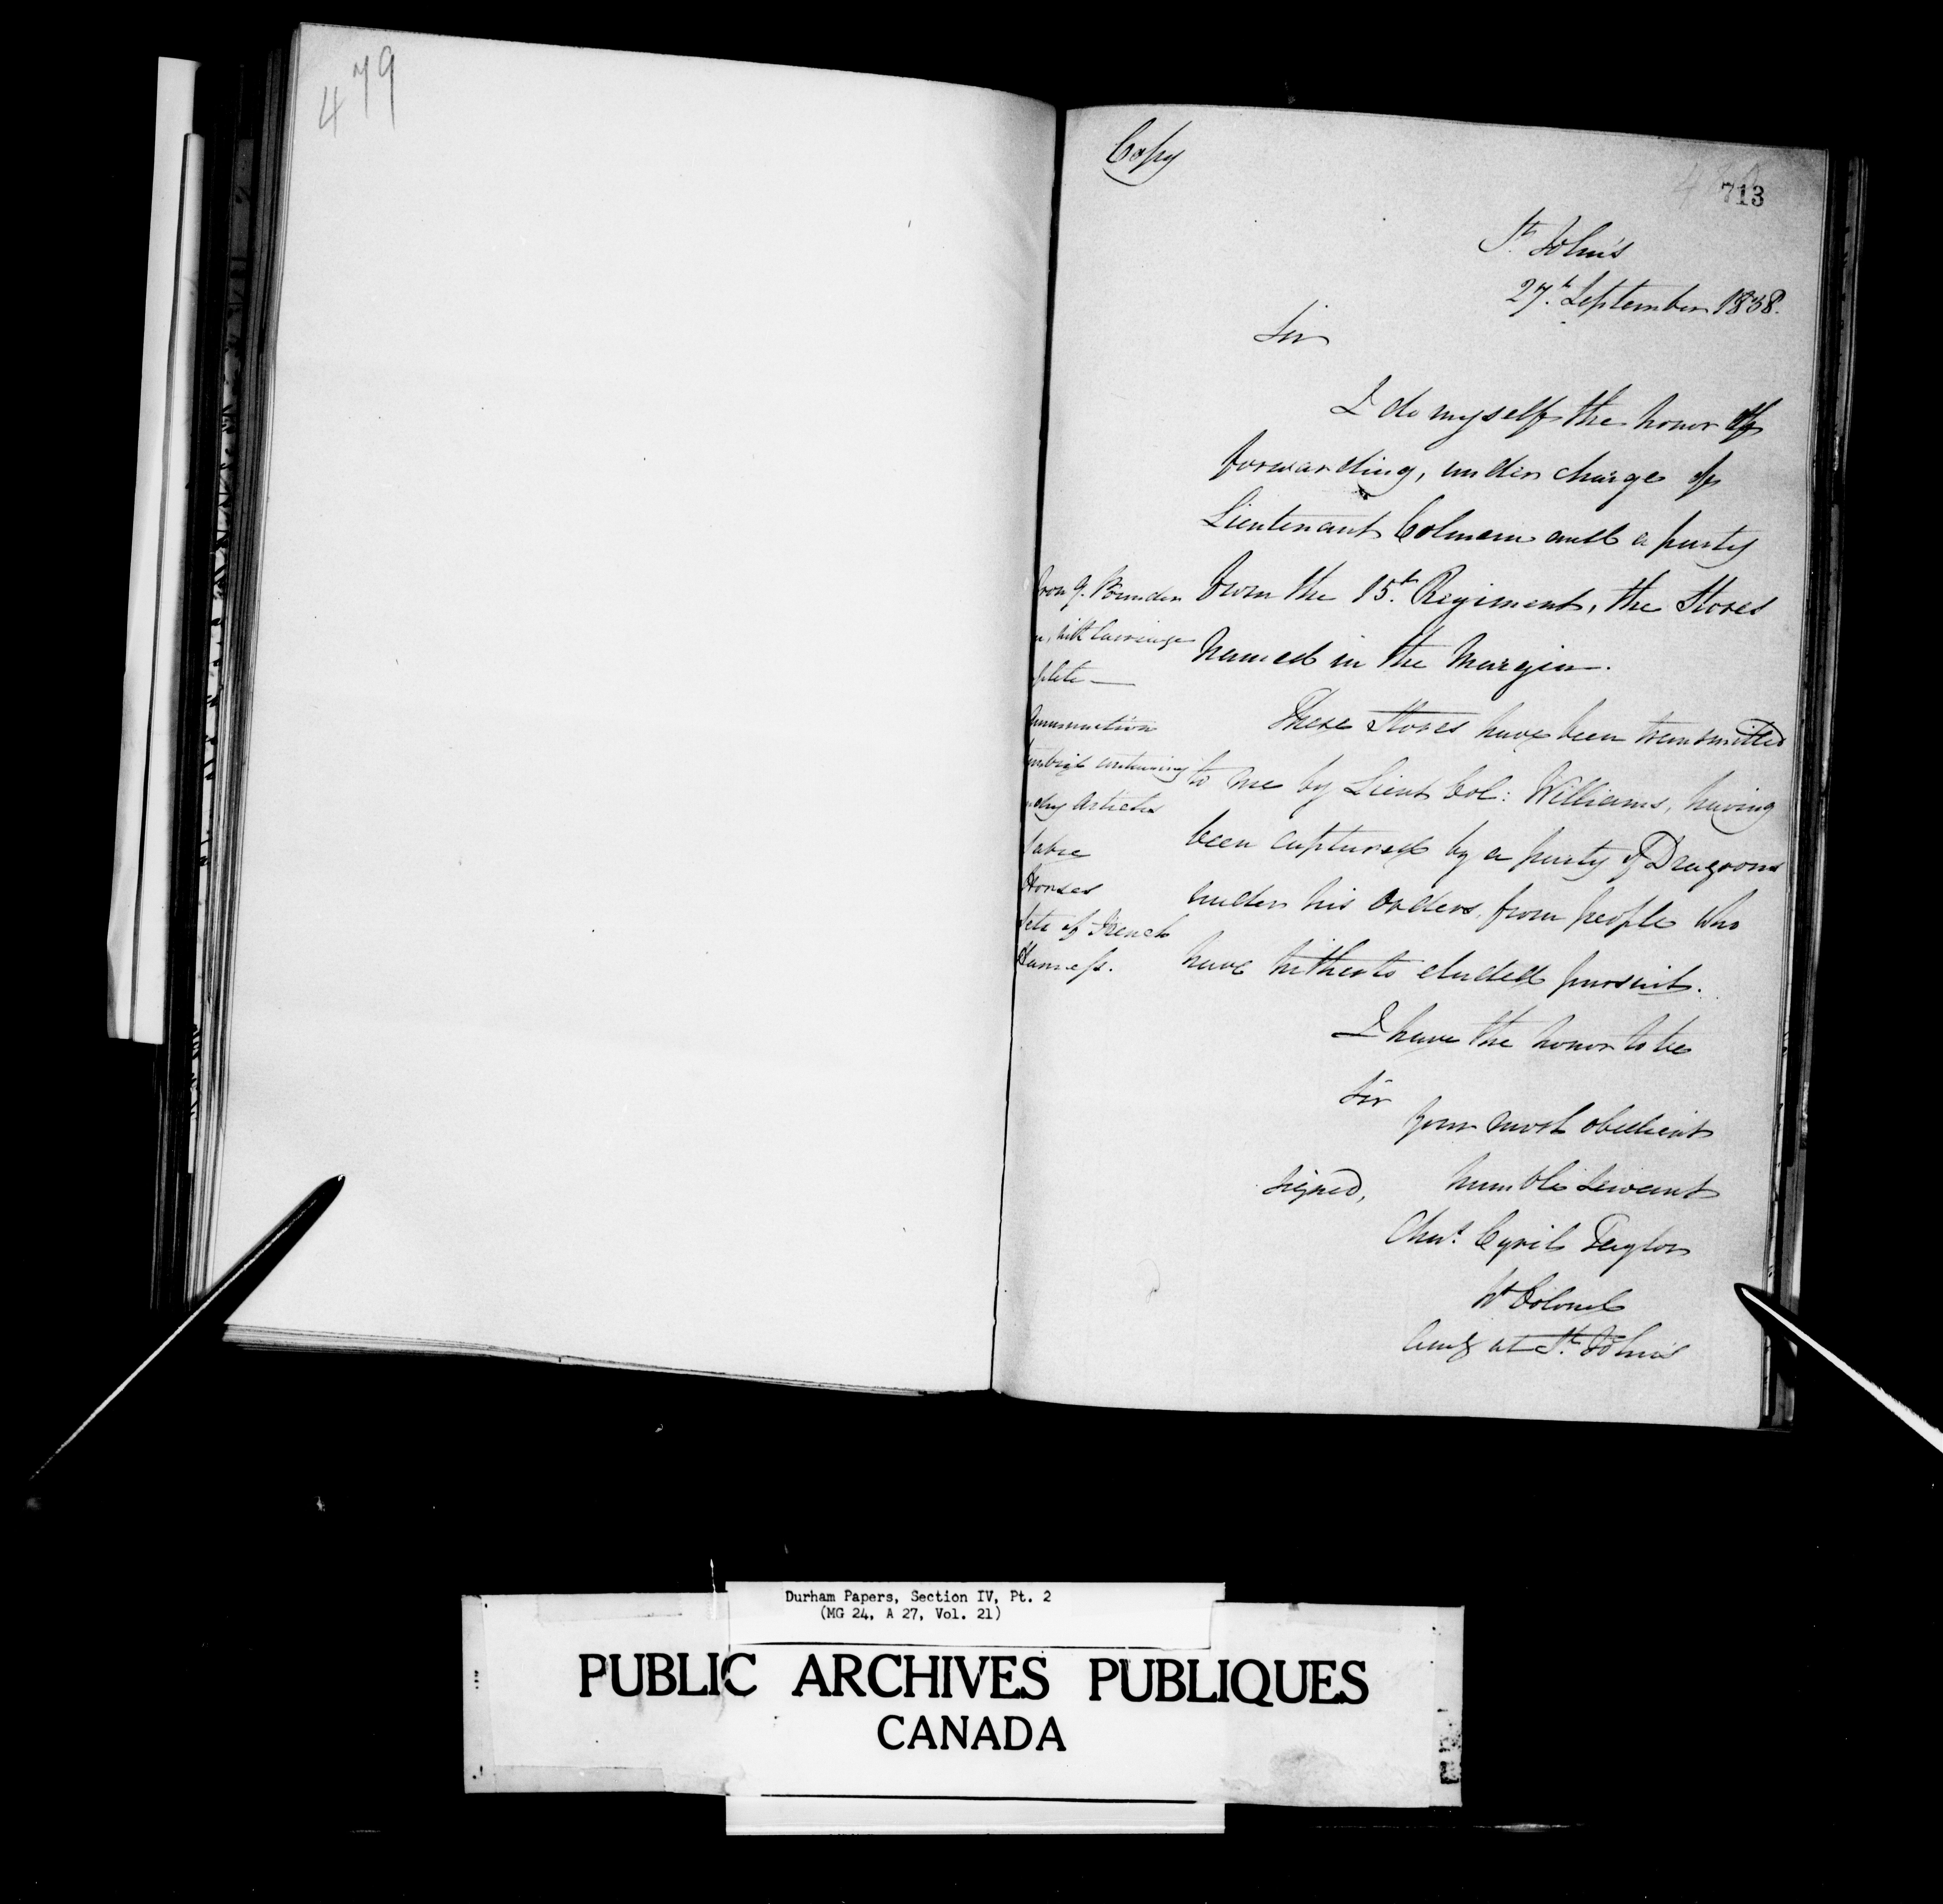 479
Copy
713
St Johns
27th September 1838.
Sir
I do myself the honor of
forwarding, under charge of
Lieutenant Colman and a party
from the 15th Regiment, the Stores
named in the Margin.
Iron 9. Pounder
with Carriage
plete —
Ammunition
containing
Articles
Sabre
Horses
Sets of French
Harness.
These Stores have been transmitted
to me by Lieut Col: Williams, having
been captured by a party of Dragoons
under his Orders, from people who
have hitherto eluded pursuit.
I have the honor to be
Sir
Your most obedient
humble Servant
Signed,
Chas. Cyril Taylor
Lt Colonel
Comg at St. Johns
Durham Papers, Section IV, Pt. 2
(MG 24, A 27, Vol. 21)
PUBLIC ARCHIVES PUBLIQUES
CANADA